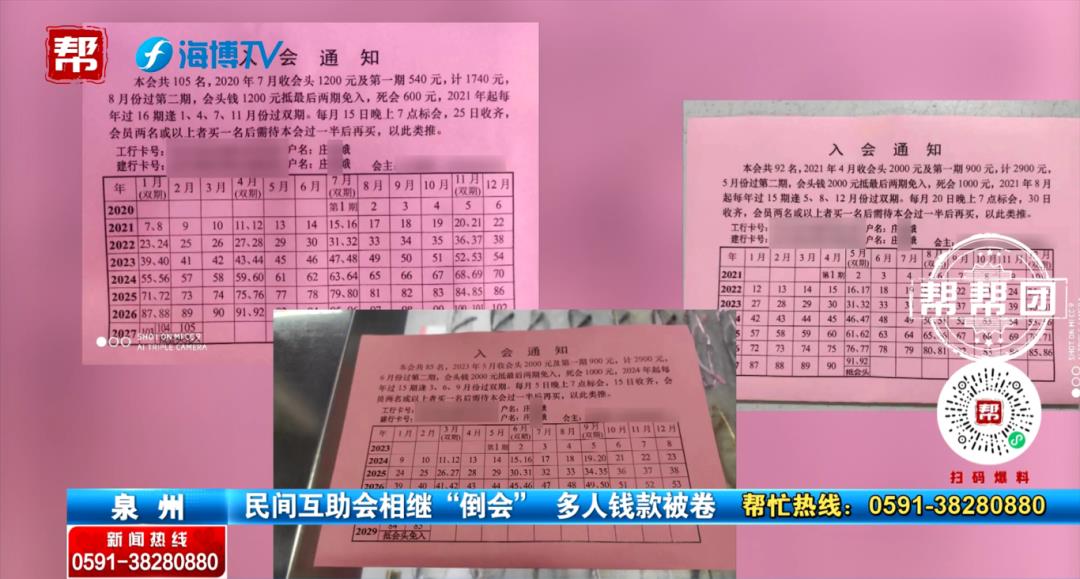 帮
海博TV
入会通知
本会共 105 名，2020 年 7 月收会头 1200 元及第一期 540 元，计 1740 元，
8 月份过第二期，会头钱 1200 元抵最后两期免入，死会 600 元，2021 年起每
年过 16 期逢 1、4、7、11 月份过双期。每月 15 日晚上 7 点标会，25 日收齐，
会员两名或以上者买一名后需待本会过一半后再买，以此类推。
工行卡号： 户名：庄 娥
建行卡号： 户名：庄 娥 会主：
年 1 月(双期) 2 月 3 月 4 月(双期) 5 月 6 月 7 月(双期) 8 月 9 月 10 月 11 月(双期) 12 月
2020 第 1 期 2 3 4 5 6
2021 7、8 9 10 11、12 13 14 15、16 17 18 19 20、21 22
2022 23、24 25 26 27、28 29 30 31、32 33 34 35 36、37 38
2023 39、40 41 42 43、44 45 46 47、48 49 50 51 52、53 54
2024 55、56 57 58 59、60 61 62 63、64 65 66 67 68、69 70
2025 71、72 73 74 75、76 77 78 79、80 81 82 83 84、85 86
2026 87、88 89 90 91、92
2027 103 104 105
SHOT ON MI CC9
AI TRIPLE CAMERA
入会通知
本会共 92 名，2021 年 4 月收会头 2000 元及第一期 900 元，计 2900 元，
5 月份过第二期，会头钱 2000 元抵最后两期免入，死会 1000 元，2021 年 8 月
起每年过 15 期逢 5、8、12 月份过双期。每月 20 日晚上 7 点标会，30 日
收齐，会员两名或以上者买一名后需待本会过一半后再买，以此类推。
工行卡号： 户名：庄
建行卡号： 户名：庄 会主：
年 1 月 2 月 3 月 4 月 5 月(双期) 6 月 7 月 9 月 10 月 11 月
2021 第 1 期 2 3 4
2022 12 13 14 15 16、17 18 19
2023 27 28 29 30 31、32 33 34
46、47 48 49
57 58 59 60 61、62 63 64
72 73 74 75 76、77 78 79 80、81 85、86
87 88 89 90 91、92
抵会头
帮帮团
入会通知
本会共 85 名，2023 年 5 月收会头 2000 元及第一期 900 元，计 2900 元，
6 月份过第二期，会头钱 2000 元抵最后两期免入，死会 1000 元，2024 年起每
年过 15 期逢 3、6、9 月份过双期。每月 5 日晚上 7 点标会，15 日收齐，会
员两名或以上者买一名后需待本会过一半后再买，以此类推。
工行卡号： 户名：庄 娥
建行卡号： 户名：庄 娥 会主：
年 1 月 2 月 3 月(双期) 4 月 5 月 6 月(双期) 7 月 8 月 9 月(双期) 10 月 11 月 12 月
2023 第 1 期 2 3 4 5 6 7 8
2024 9 10 11、12 13 14 15、16 17 18 19、20 21 22 23
2025 24 25 26、27 28 29 30、31 32 33 34、35 36 37 38
39 40 41、42 43 44 45、46 47 48 49、50 51 52 53
2029 抵会头免入
帮
扫码爆料
泉州 民间互助会相继“倒会” 多人钱款被卷 帮忙热线：0591-38280880
新闻热线
0591-38280880